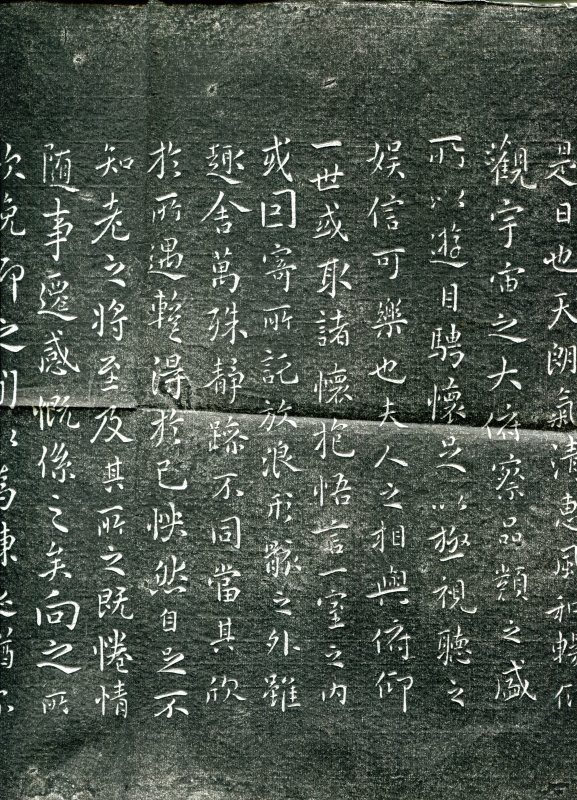 是日也天朗氣清惠風和暢仰
觀宇宙之大俯察品類之盛
所以遊目騁懷足以極視聽之
娛信可樂也夫人之相與俯仰
一世或取諸懷抱悟言一室之內
或因寄所託放浪形骸之外雖
趣舍萬殊靜躁不同當其欣
於所遇蹔得於己怏然自足不
知老之將至及其所之既惓情
隨事遷感慨係之矣向之所
欣俛仰之閒以爲陳迹猶不